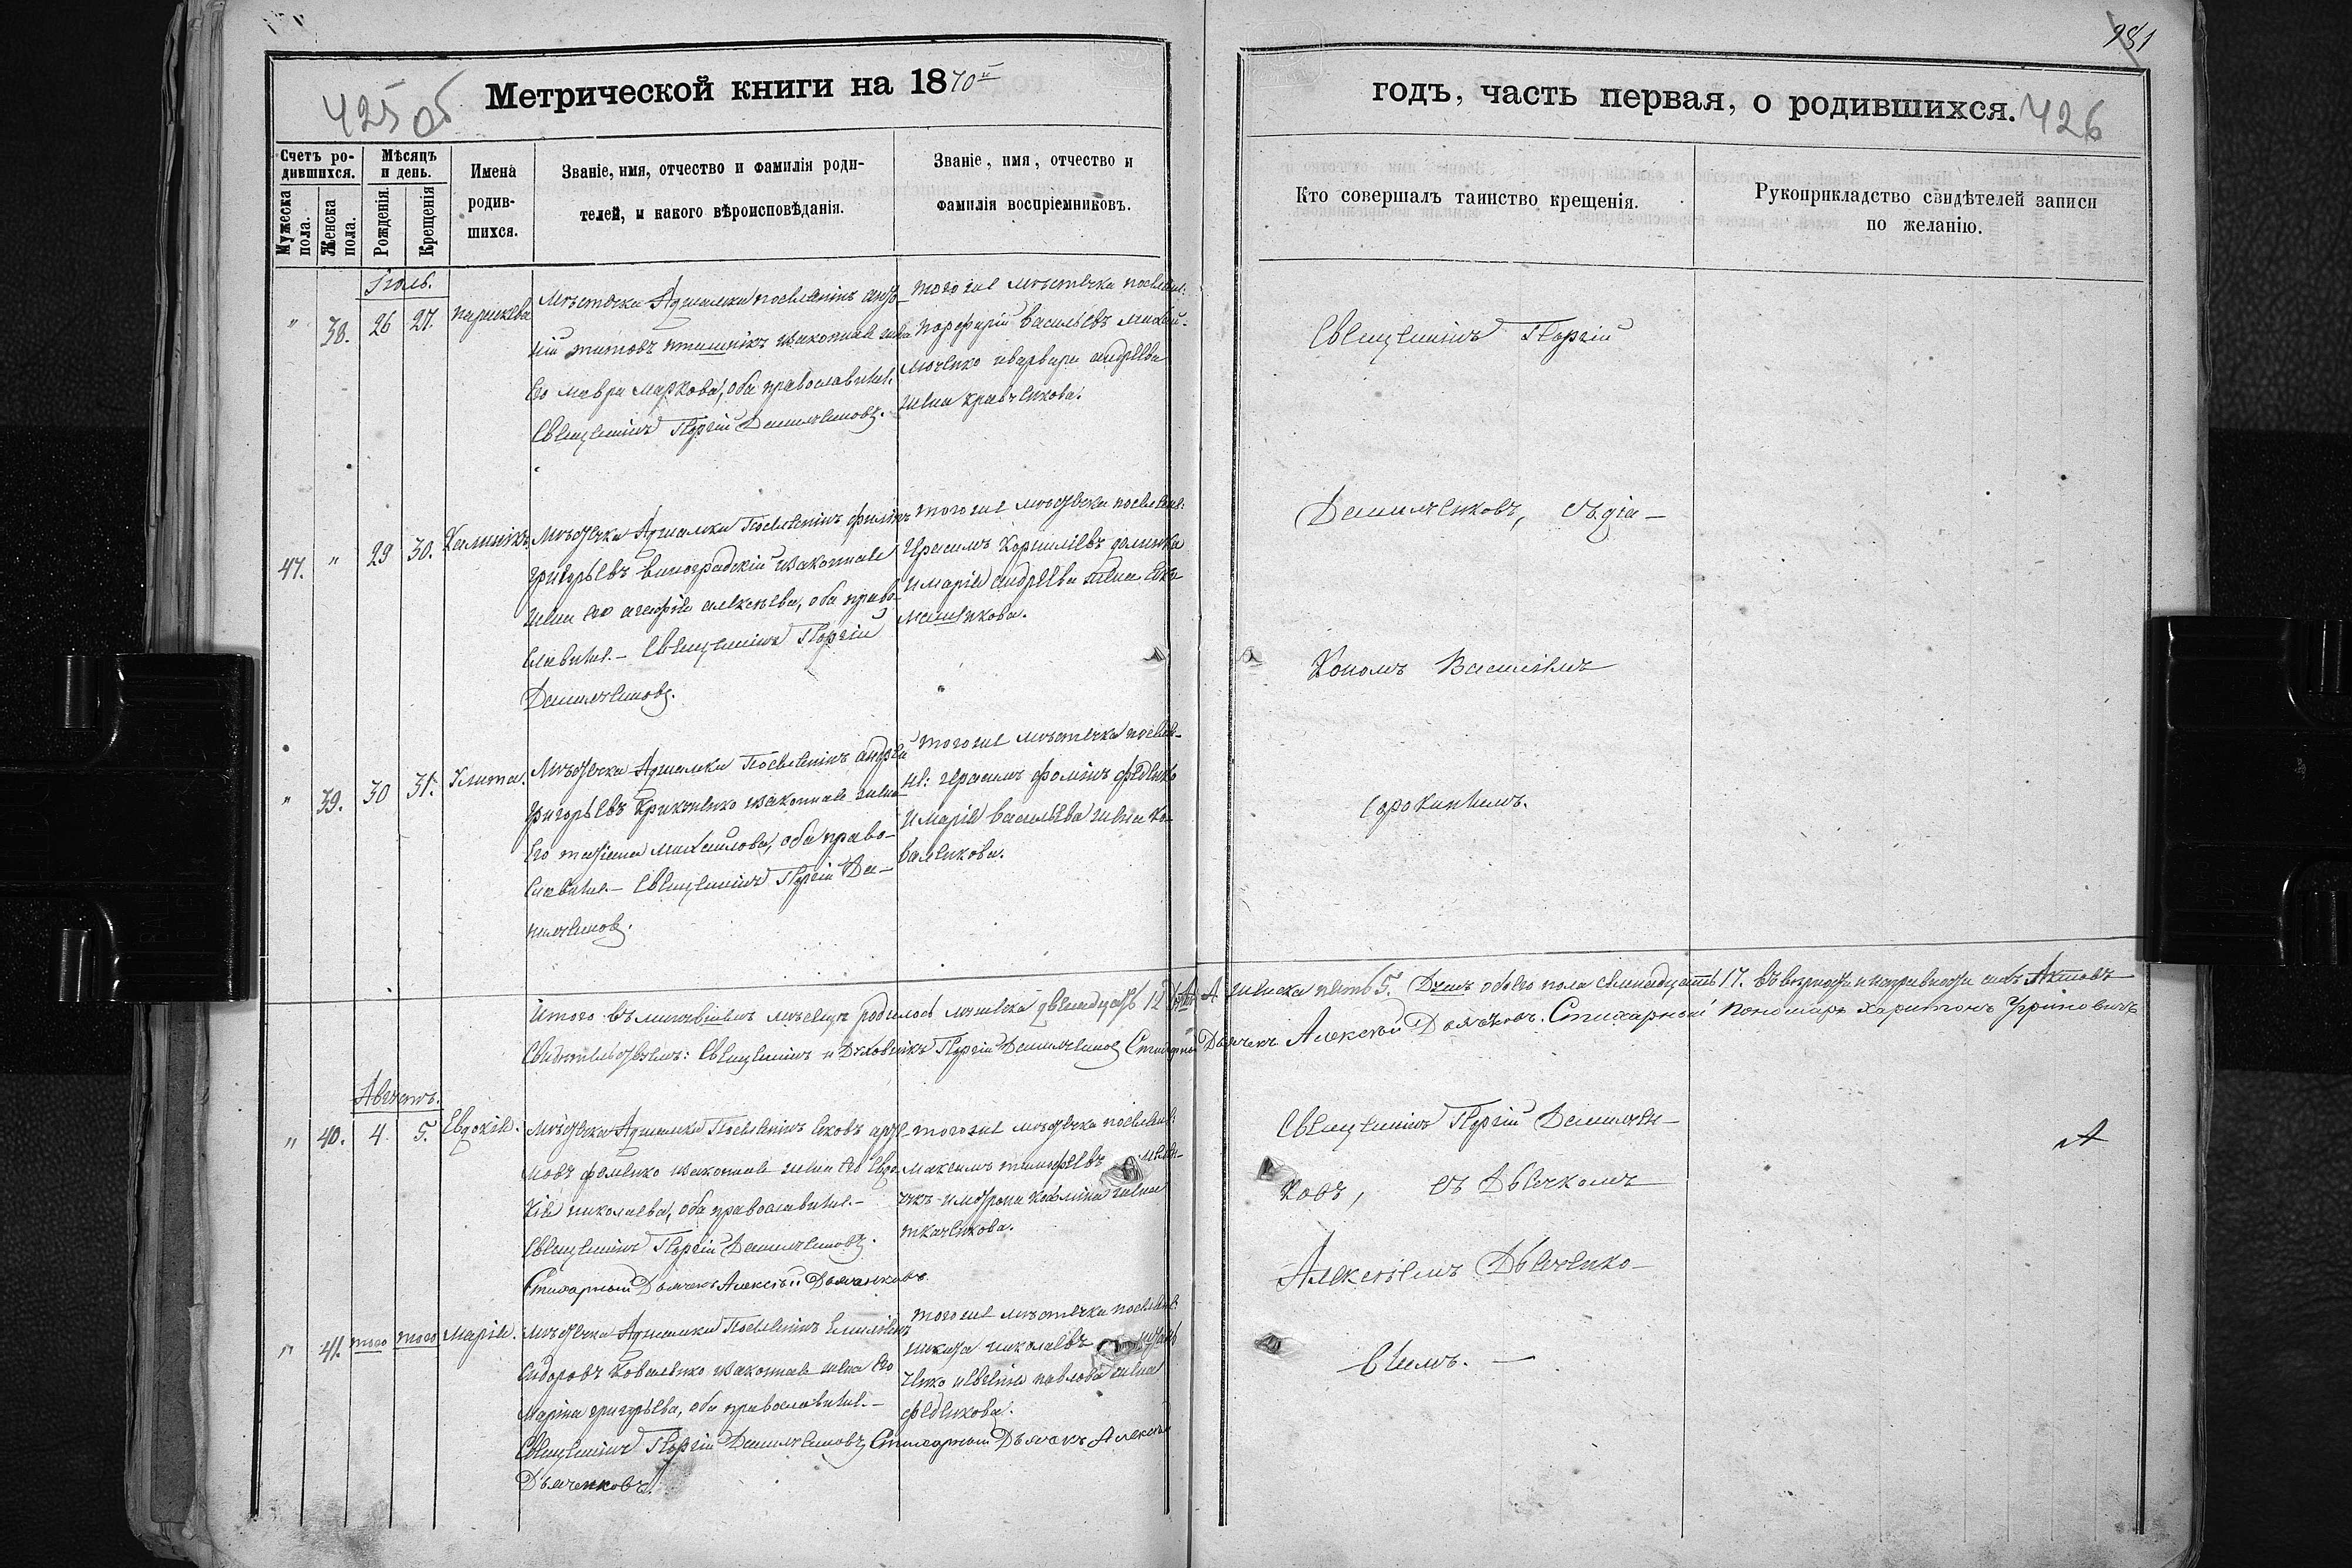 981
Метрической книги на 1870й
годъ, часть первая, о родившихся.
425 об
426
Счетъ родившихся.
Мужеска пола.
Женска пола.
Мѣсяцъ и день.
Рожденія.
Крещенія
Имена родившихся.
Званіе, имя, отчество и фамилія родителей, и какого вѣроисповѣданія.
Званіе, имя, отчество и фамилія воспріемниковъ.
Кто совершалъ таинство крещенія.
Рукоприкладство свидѣтелей записи по желанію.
Іюль.
" 38. 26 27.
Мѣстечка Аджамки поселянинъ
титовъ законная жена
его мавра маркова, оба православные.
Священникъ Георгій Данильченковъ.
тогоже мѣстечка поселян:
порфирій васильевъ
и варвара андреева
жена кравченкова.
Священникъ Георгій
47. " 29 30. Калиникъ.
Мѣстечка Аджамки Поселянинъ филипъ
григорьевъ виноградскій и законная
жена его агафія алексѣева, оба право-
славные. – Священникъ Георгій
Данильченковъ.
тогоже мѣстечка поселян:
Герасимъ Корниліевъ
и марія андреева жена
Данильченковъ, съ діа-
кономъ Василіемъ
" 39. 30 31. Улита.
Мѣстечка Аджамки Поселянинъ андрей
григорьевъ законная жена
его татіана михаилова, оба право-
славные. – Священникъ Георгій Да-
нильченковъ.
тогоже мѣстечка поселян-
не: герасимъ фоминъ феденко
и марія васильева жена ко-
валенкова.
Сорокинымъ.
Итого въ мѣсяцѣ родилось мужеска двенадцать 12
А женска пять 5. Всѣхъ обоего пола семнадцать 17. Актовъ
Свидѣтельствуемъ: Священникъ и Духовникъ Георгій Данильченковъ Стихарный Дьячекъ Алексѣй Дьяченковъ. Стихарный Пономарь Харитонъ
Августъ.
" 40. 4. 5. Евдокія.
Мѣстечка Аджамки Поселянинъ яковъ арте-
мовъ фоменко и законная жена его Евдо-
кія николаева, оба православные. –
Священникъ Георгій Данильченковъ.
Стихарный Дьячекъ Алексѣй Дьяченковъ.
тогоже мѣстечка поселян:
максимъ тимофеевъ
и матрона жена
ткаченкова.
Священникъ Георгій Данильчен-
ковъ, съ Дьячкомъ
Алексѣемъ Дьяченко-
вымъ. –
" 41. того того Марія.
Мѣстечка Аджамки Поселянинъ Емиліянъ
Сидоровъ Коваленко и законная жена его
Марина григорьева, оба православные. –
Священникъ Георгій Данильченковъ, Стихарный Дьячекъ Алексѣй
Дьяченковъ.
тогоже мѣстечка поселян:
никита николаевъ
ченко и евгенія павлова жена
феденкова.